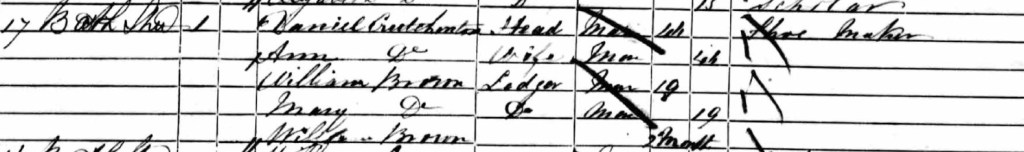 Scholar
17 Bath Stre 1 Daniel Crutchenton Head Mar 44 Shoe Maker
Ann Do Wife Mar 44
William Brown Lodger Mar 19
Mary Do Do Mar 19
Brown 2 Month